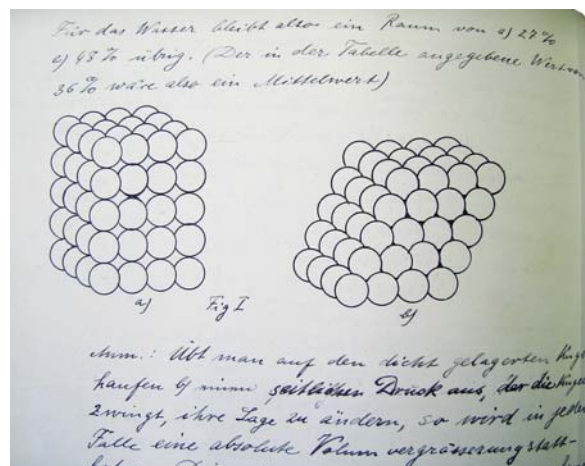 Für das Wasser bleibt also ein Raum von a) 27%
c) 48% übrig. (Der in der Tabelle angegebene Wert von
36% wäre also ein Mittelwert)
a)
Fig I
b)
Anm.: Übt man auf den dicht gelagerten Kugel
haufen b) einen seitlichen Druck aus, der die Kugeln
zwingt, ihre Lage zu ändern, so wird in jedem
Falle eine absolute Volumvergrösserung statt-